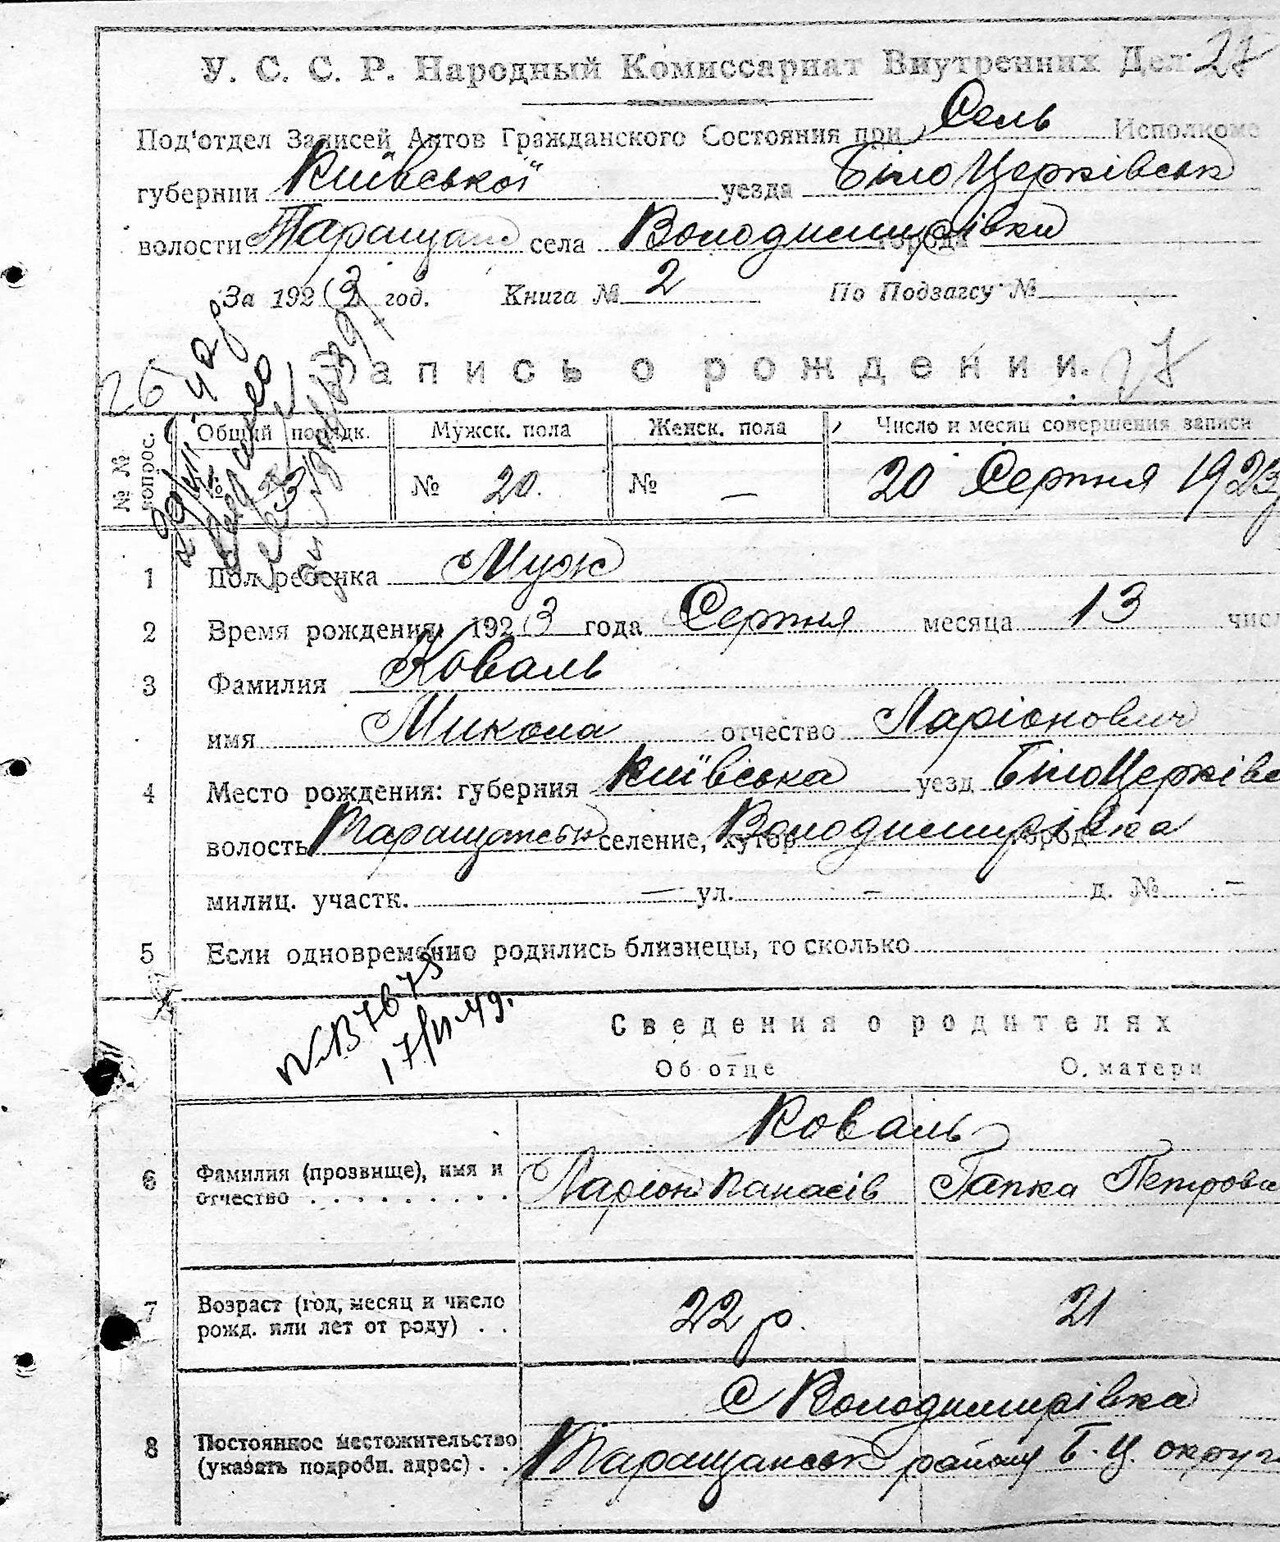 У. С. С. Р. Народный Комиссариат Внутренних Дел. 27
Под'отдел Записей Актов Гражданского Состояния при Сель Исполкоме
губернии Київської уезда БілоЦерківськ
волости Таращан села Володимирівки города
За 1923 год. Книга № 2 По Подзагсу №
26 Запись о рождении. 27
№№ вопрос. Общий порядк. Мужск. пола Женск. пола Число и месяц совершения записи
№ № 20. № — 20 Серпня 1923
1 Пол ребенка Муж
2 Время рождения: 1923 года Серпня месяца 13 числ
3 Фамилия Коваль
имя Микола отчество Ларіонович
4 Место рождения: губерния Київська уезд БілоЦерківс
волость Таращанськ селение, хутор Володимирівка город
милиц. участк. — ул. — д. № —
5 Если одновременно родились близнецы, то сколько
17/VI-49.
Сведения о родителях
Об отце О матери
Коваль
6 Фамилия (прозвище), имя и отчество . . . . . . . . . Ларіон Панасів Гапка Петрова
7 Возраст (год, месяц и число рожд. или лет от роду) . . 22 р. 21
С Володимирівка
8 Постоянное местожительство (указать подробн. адрес) . . Таращанськ району Б. Ц. округ